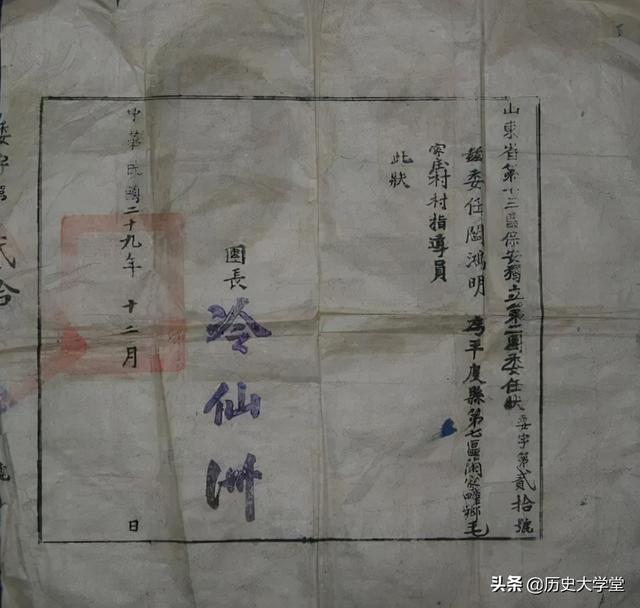 山東省第十三區保安獨立第團委任狀 委字第貳拾號
茲委任鴻明 為平度縣第七區家疃鄉毛
家庄村村指導員
此狀
團長 冷仙洲
中華民國二十九年 十二月 日
委字第 貳拾 號
头条 @历史大学堂